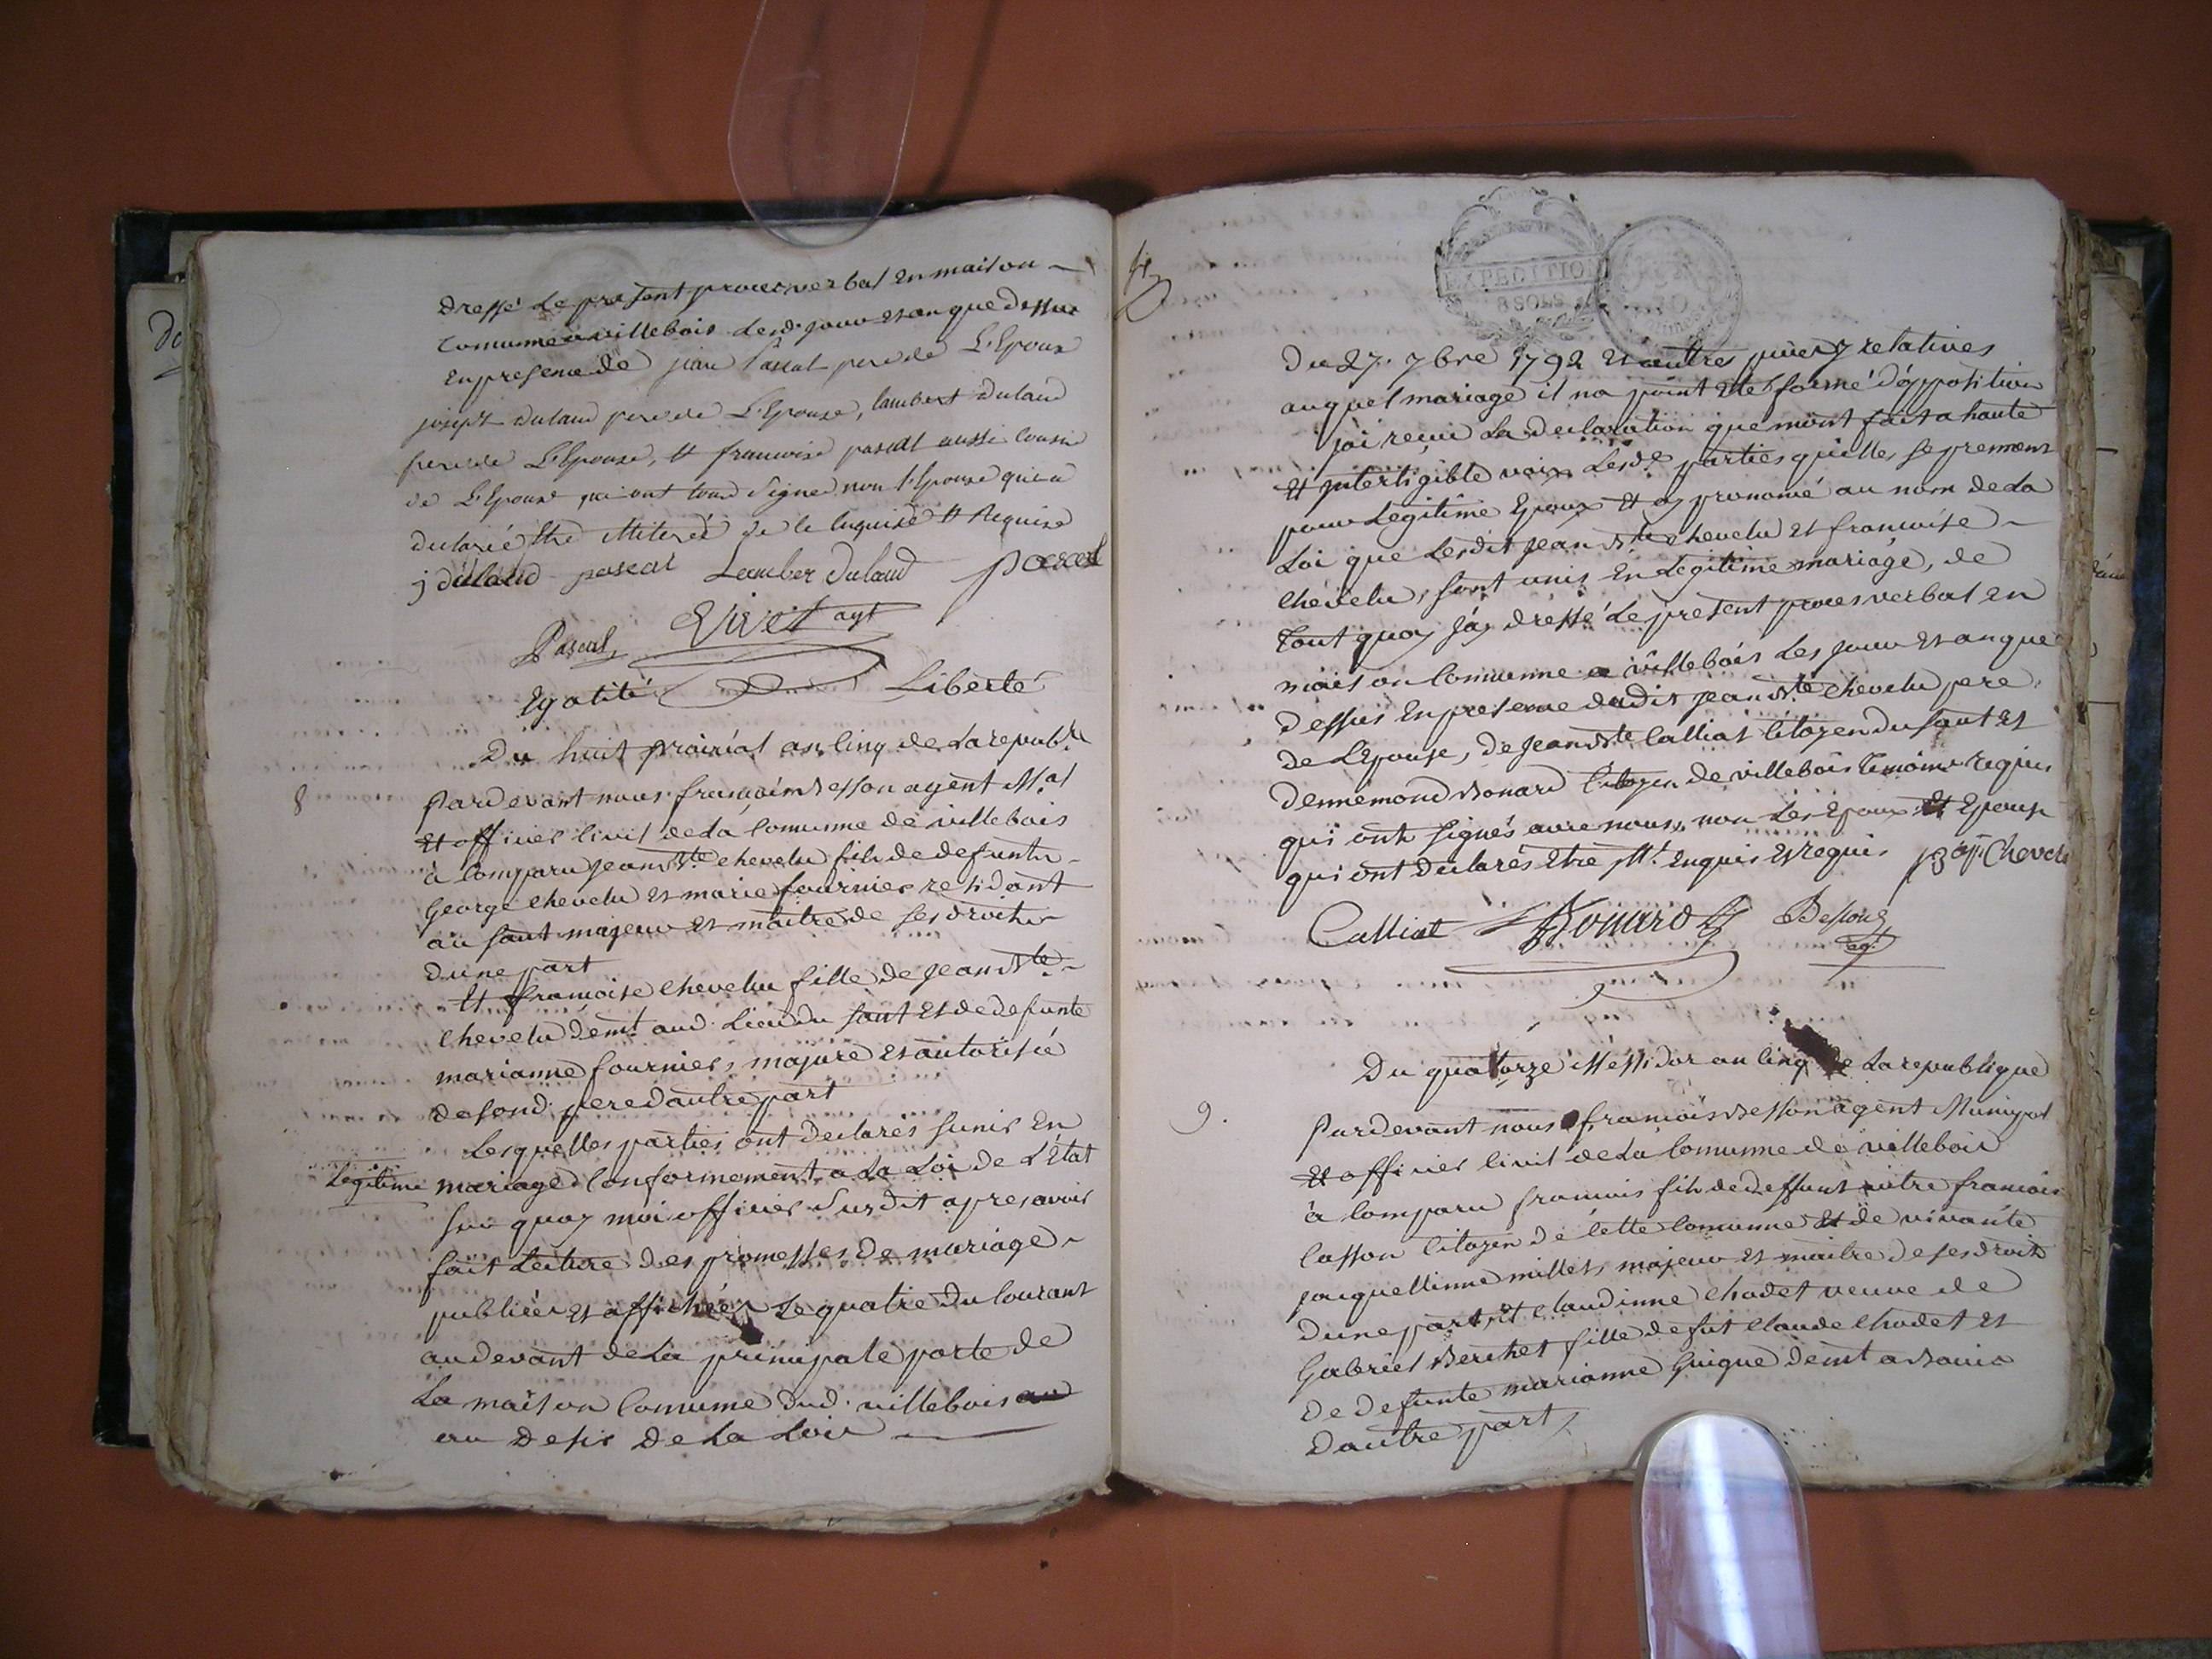 dressé Le present procesverbal En maison
Comune a villebois Lesd. jour et an que dessus
En presence de jean Pascal pere de L'Epoux
joseph dulaud pere de L'Epouse, lambert dulaud
frere de L'Epouse, et francoise pascal aussi cousine
de L'Epoux, qui ont tous signes non l'Epouse qui a
declaré Etre illiterée de ce Enquise et Requise
j dulaud pascal Lamber dulaud pascal
Pascal Vivet agt
Egalité Liberté
Du huit prairial an cinq de La republ.e
8 Pardevant nous francois Besson agent M.al
Et officier Civil de La Comune de villebois
à Comparu jean Bte chevelu fils de defunts
George chevelu et marie fournier residant
au saut majeur et maitre de ses droits
dune part
Et francoise chevelu fille de jean Bte
chevelu demt. aud. Lieu du saut et de defunte
marianne fournier, majure et autorisée
de sond. pere dautre part
Lesquelles parties ont declarés sunir En
Legitime mariage Conformement a La Loi de L'Etat
sur quoy moi officier susdit apres avoir
fait Lecture des promesses de mariage
publiées et affichées Le quatre du Courant
au devant de La principale porte de
La maison Comune dud. villebois
au desir de La Loi
Du 27. 7bre 1792 et autres pieces y relatives
auquel mariage il na point Eté formé d'opposition
jai reçu La declaration que mont fait a haute
Et intertigible voix Lesd.es parties quelles se prennent
pour Legitime Epoux Et ay prononcé au nom de La
Loi que Lesdit jean Bte chevelu et francoise
chevelu, sont unis En Legitime mariage, de
tout quoy jay dressé Le present proces verbal en
maison Comune a villebois Les jour et an que
dessus En presence dudit jean Bte chevelu pere
de Lepouse, de jean Bte Calliat Citoyen du saut et
dennemond Bonard Citoyen de villebois temoins requis
qui ont signés avec nous, non Les Epoux Et Epouse
qui ont declarés Etre Ill.t Enquis et requis
Bap. Chevelu
Calliat Bonard Besson
ag.
Du quatorze Messidor an cinq de La republique
9. Pardevant nous francois Besson agent Municipal
Et officier Civil de La Comune de villebois
à Comparu francois fils de deffunt autre francois
Casson Citoyen de cette Comune Et de vivante
jacquellinne millet, majeur et maitre de ses droits
dune part, Et Claudinne Chodet veuve de
Gabriel Berchet fille de fut Claude Chodet et
De defunte marianne Guigue demt a
Dautre part,
EXPEDITION
8 SOLS